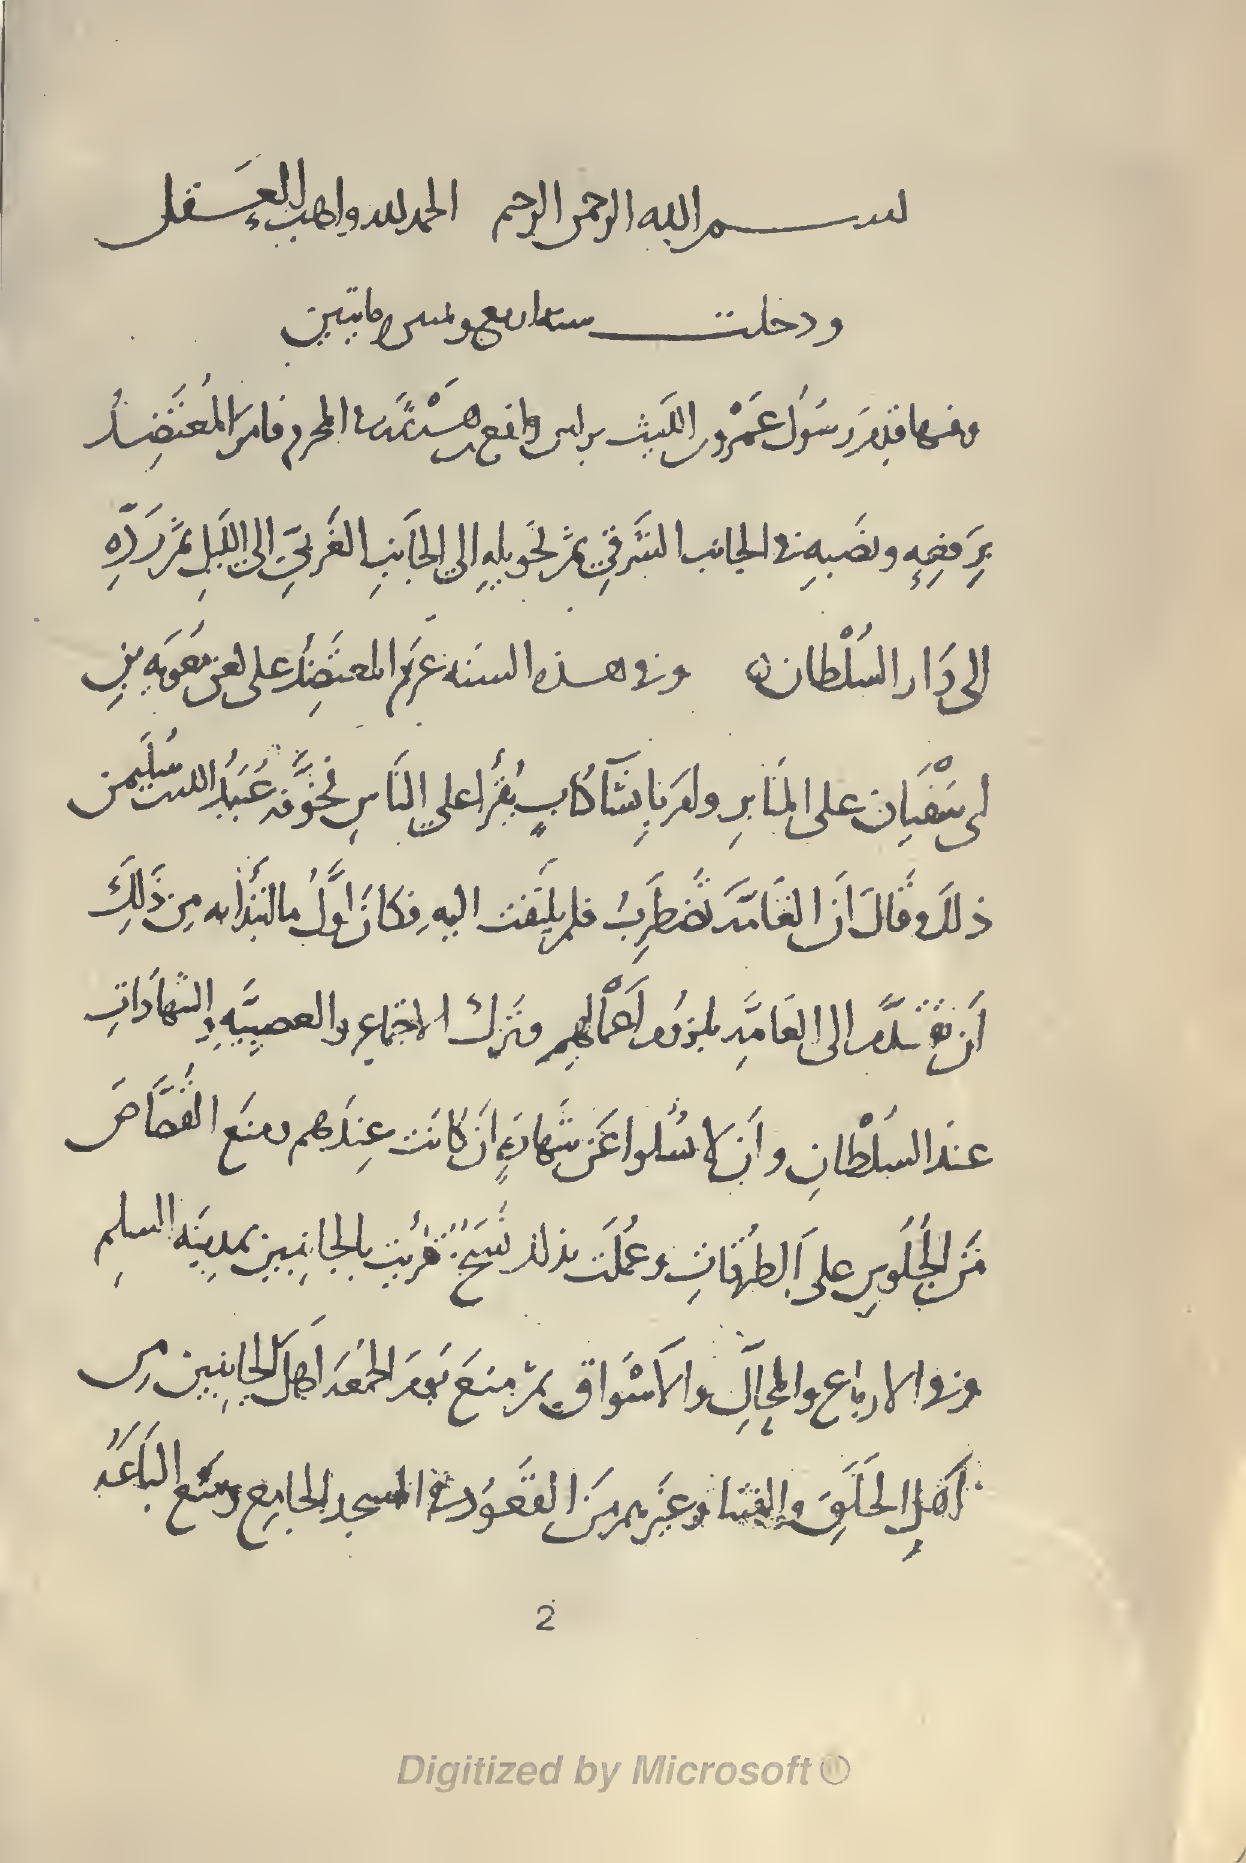 بسم الله الرحمن الرحيم الحمد لله واهب العقل
ودخلت سنة اربع وثمنين ومايتين
وفيها قدم رسول عمرو بن الليث براس رافع بن هرثمة المحرم فامر المعتضد
برفعه ونصبه في الجانب الشرقي ثم تحويله الي الجانب الغربي الي الليل ثم رده
الى دار السلطان وفي هذه السنه عزم المعتضد على لعن معويه بن
ابي سفيان على المنابر وامر بانشآ كتاب يقرأ علي الناس فخوفه عبيد الله بن سليمن
ذلك وقال ان العامه تضطرب فلم يلتفت اليه فكان اول ما ابتدأ به من ذلك
ان تقدم الى العامه بلزوم اعمالهم وترك الاجتماع والعصبيه والشهادات
عند السلطان وان لا يسلوا عن شهادة ان كانت عندهم ومنع القصاص
من الجلوس على الطرقات وعملت بذلك نسخ قريت بالجانبين بمدينه السلم
وفي الارباع والمحال والاسواق ثم منع يوم الجمعه اهل الجانبين من
اهل الحلق والفتيا وغيرهم من القعود في المسجد الجامع ومنع الباعه
2
Digitized by Microsoft ®